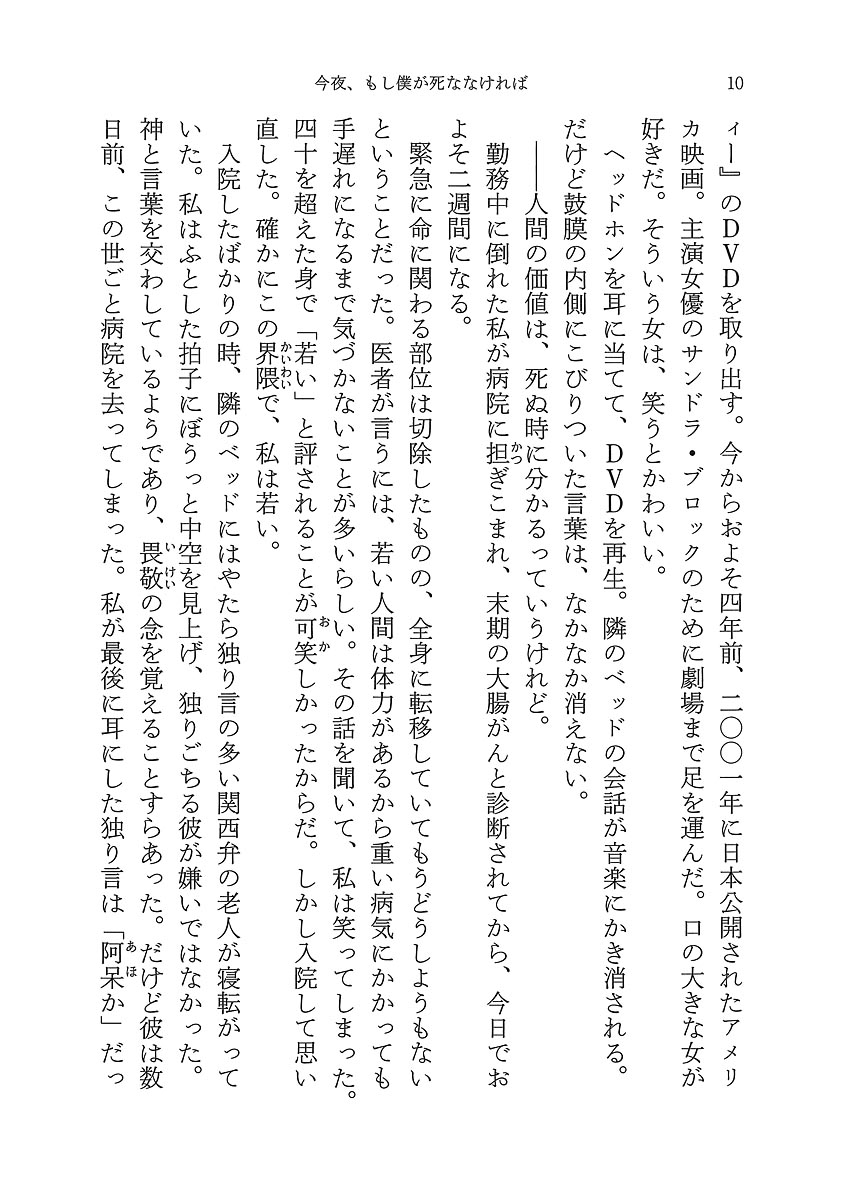 今夜、もし僕が死ななければ
10
ィー』のDVDを取り出す。今からおよそ四年前、二〇〇一年に日本公開されたアメリ
カ映画。主演女優のサンドラ・ブロックのために劇場まで足を運んだ。口の大きな女が
好きだ。そういう女は、笑うとかわいい。
ヘッドホンを耳に当てて、DVDを再生。隣のベッドの会話が音楽にかき消される。
だけど鼓膜の内側にこびりついた言葉は、なかなか消えない。
――人間の価値は、死ぬ時に分かるっていうけれど。
勤務中に倒れた私が病院に担ぎこまれ、末期の大腸がんと診断されてから、今日でお
よそ二週間になる。
緊急に命に関わる部位は切除したものの、全身に転移していてもうどうしようもない
ということだった。医者が言うには、若い人間は体力があるから重い病気にかかっても
手遅れになるまで気づかないことが多いらしい。その話を聞いて、私は笑ってしまった。
四十を超えた身で「若い」と評されることが可笑しかったからだ。しかし入院して思い
直した。確かにこの界隈で、私は若い。
入院したばかりの時、隣のベッドにはやたら独り言の多い関西弁の老人が寝転がって
いた。私はふとした拍子にぼうっと中空を見上げ、独りごちる彼が嫌いではなかった。
神と言葉を交わしているようであり、畏敬の念を覚えることすらあった。だけど彼は数
日前、この世ごと病院を去ってしまった。私が最後に耳にした独り言は「阿呆か」だっ